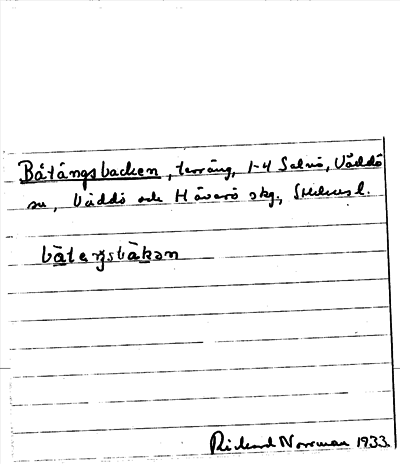 Båtängsbacken, terräng, 1-4 Salnö, Väddö
sn, Väddö och Häverö skg, Sthlms l.
bå̀teŋsbàkən
Rickard Norrman 1933.